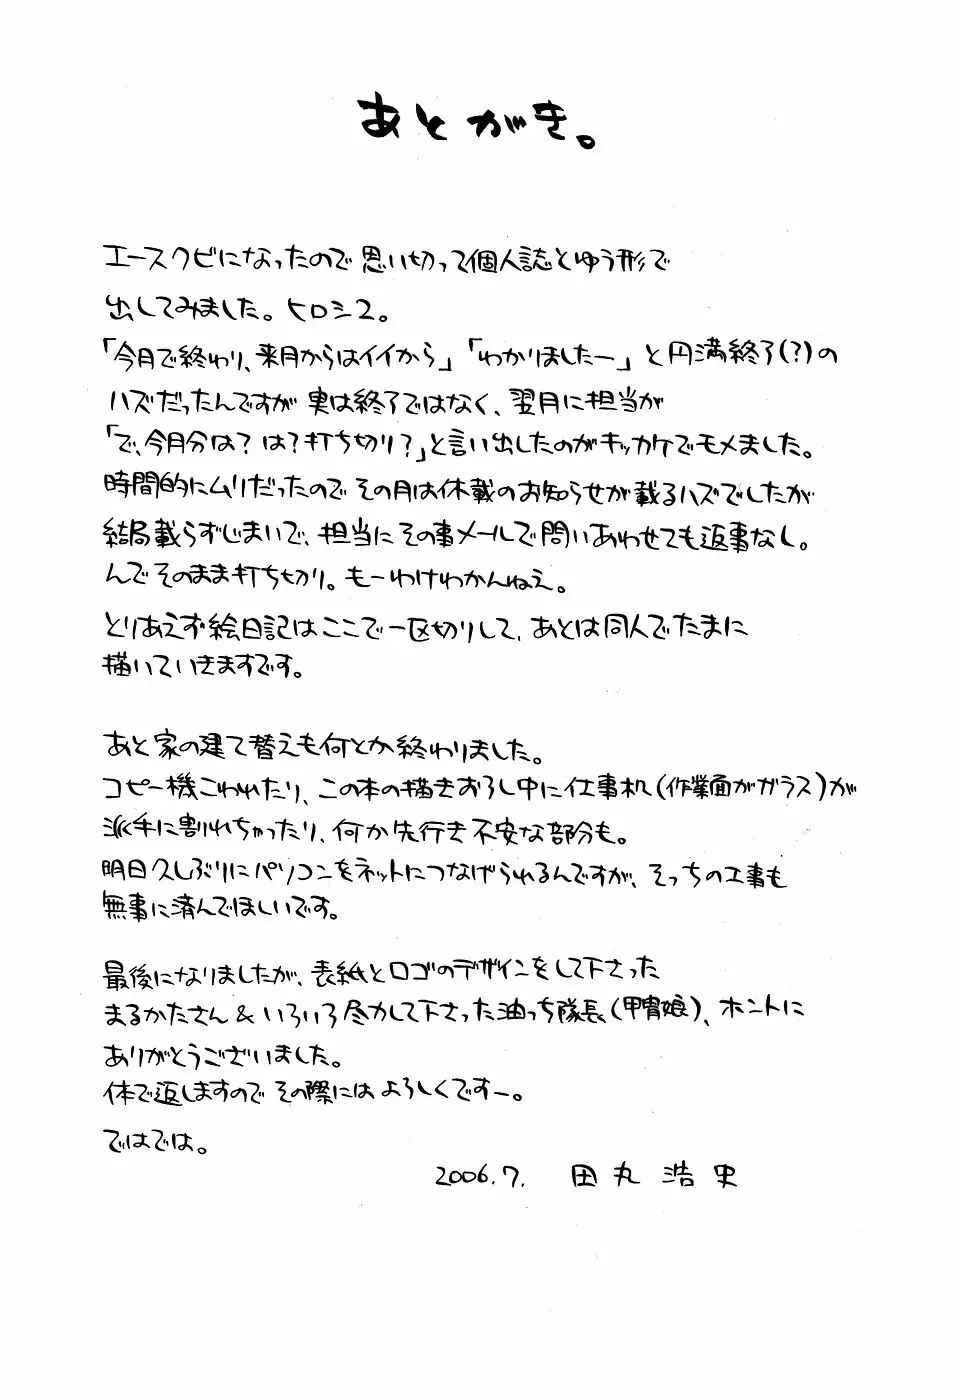 あとがき。
エースクビになったので思い切って個人誌とゆう形で
出してみました。ヒロシ2。
「今月で終わり、来月からはイイから」「わかりましたー」と円満終了(?)の
ハズだったんですが実は終了ではなく、翌月に担当が
「で、今月分は?は?打ち切り?」と言い出したのがキッカケでモメました。
時間的にムリだったのでその月は休載のお知らせが載るハズでしたが
結局載らずじまいで、担当にその事メールで問いあわせても返事なし。
んでそのまま打ち切り。もーわけわかんねえ。
とりあえず絵日記はここで一区切りして、あとは同人でたまに
描いていきますです。
あと家の建て替えも何とか終わりました。
コピー機こわれたり、この本の描きおろし中に仕事机(作業面がガラス)が
派手に割れちゃったり、何か先行き不安な部分も。
明日久しぶりにパソコンをネットにつなげられるんですが、そっちの工事も
無事に済んでほしいです。
最後になりましたが、表紙とロゴのデザインをして下さった
まるかたさん&いろいろ尽力して下さった油っち隊長(甲冑娘)、ホントに
ありがとうございました。
体で返しますのでその際にはよろしくですー。
ではでは。
2006.7. 田丸浩史